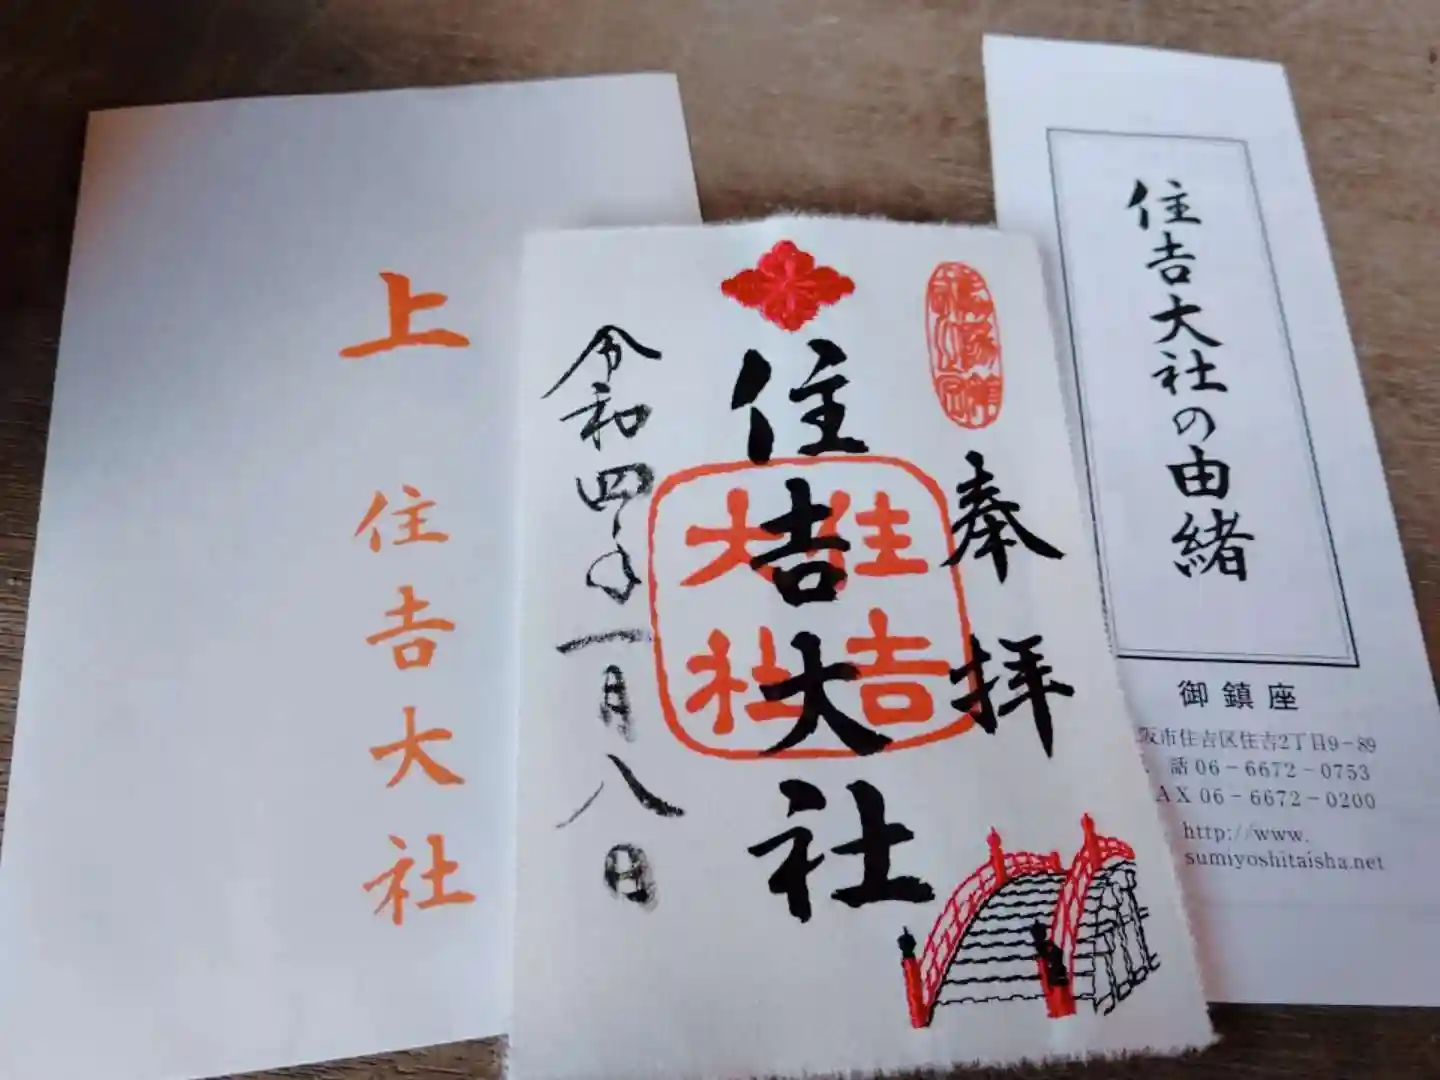 上
住吉大社
奉拝
住吉大社
住吉大社
令和四年一月八日
住吉大社の由緒
御鎮座
阪市住吉区住吉2丁目9-89
話 06-6672-0753
AX 06-6672-0200
http://www.
sumiyoshitaisha.net